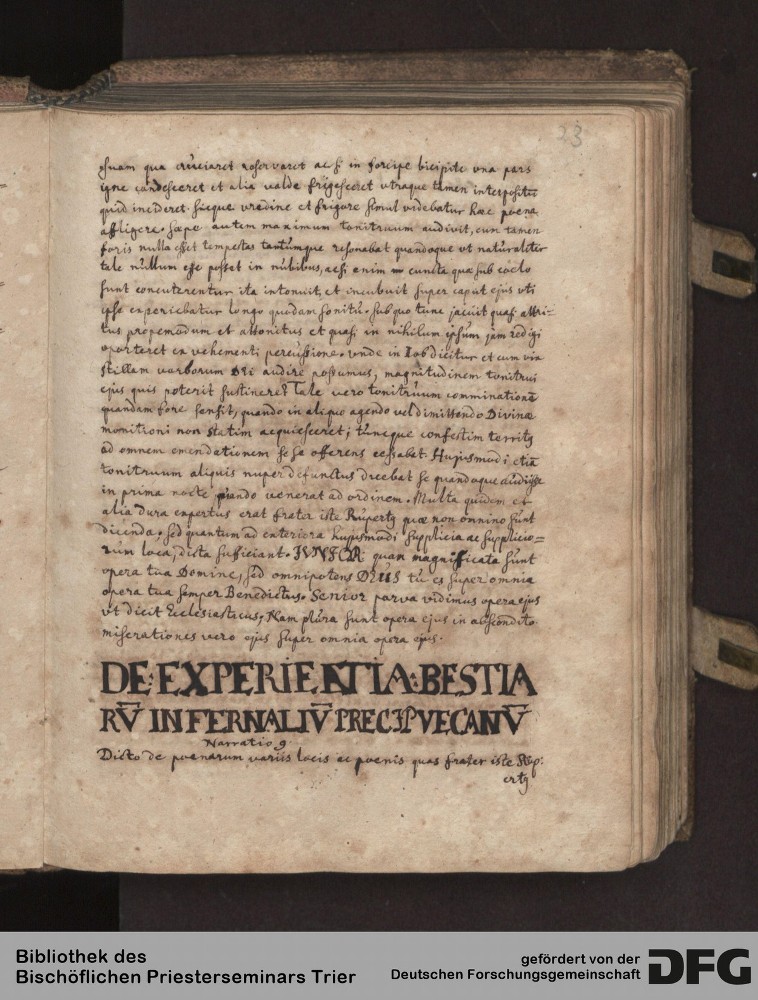 23
suam qua cruciaret reservaret ac si in forcipe bicipite una pars
igne candesceret et alia valde frigesceret utraque tamen interpositū
quid incideret. sicque uredine et frigore simul videbatur hæc poena
affligere. Sæpe autem maximum tonitruum audivit, cum tamen
foris nulla esset tempestas tantumque resonabat quandoque ut naturaliter
tale nullum esse posset in nubibus, ac si enim cuncta quæ sub coelo
sunt concuterentur ita intonuit, et incubuit super caput ejus uti
ipse experiebatur longo quodam sonitu. sub quo tunc jacuit quasi attri=
tus propemodum et attonitus et quasi in nihilum ipsum jam redigi
oporteret ex vehementi percussione. unde in Iob dicitur et cum vix
stillam verborum DEI audire possumus, magnitudinem tonitrui
ejus quis poterit sustinere? Tale vero tonitruum comminatione
quandam fore sensit, quando in aliquo agendo vel dimittendo Divinæ
monitioni non statim acquiesceret; tuncque confestim territꝰ
ad omnem emendationem se se offerens cessabat. Hujusmodi etiā
tonitruum aliquis nuper defunctus dicebat se quandoque audiisse
in prima nocte quando venerat ad ordinem. Multa quidem et
alia dura expertus erat frater iste Rupertꝰ quæ non omnino sunt
dicenda. sed quantum ad exteriora hujusmodi supplicia ac supplicio=
rum loca, dicta sufficiant. IVNIOR quam magnificata sunt
opera tua Domine, sed omnipotens DEUS tu es super omnia
opera tua semper Benedictus. Senior parva vidimus opera ejus
ut dicit Ecclesiasticus, Nam plura sunt opera ejus in abscondito
miserationes vero ejus super omnia opera ejus.
DE EXPERIENTIA BESTIA
RŪ INFERNALIŪ PRECIPVE CANŪ
Narratio 9
Dicto de poenarum variis locis ac poenis quas frater iste Rup:
ertꝰ
Bibliothek des
Bischöflichen Priesterseminars Trier
gefördert von der
Deutschen Forschungsgemeinschaft
DFG